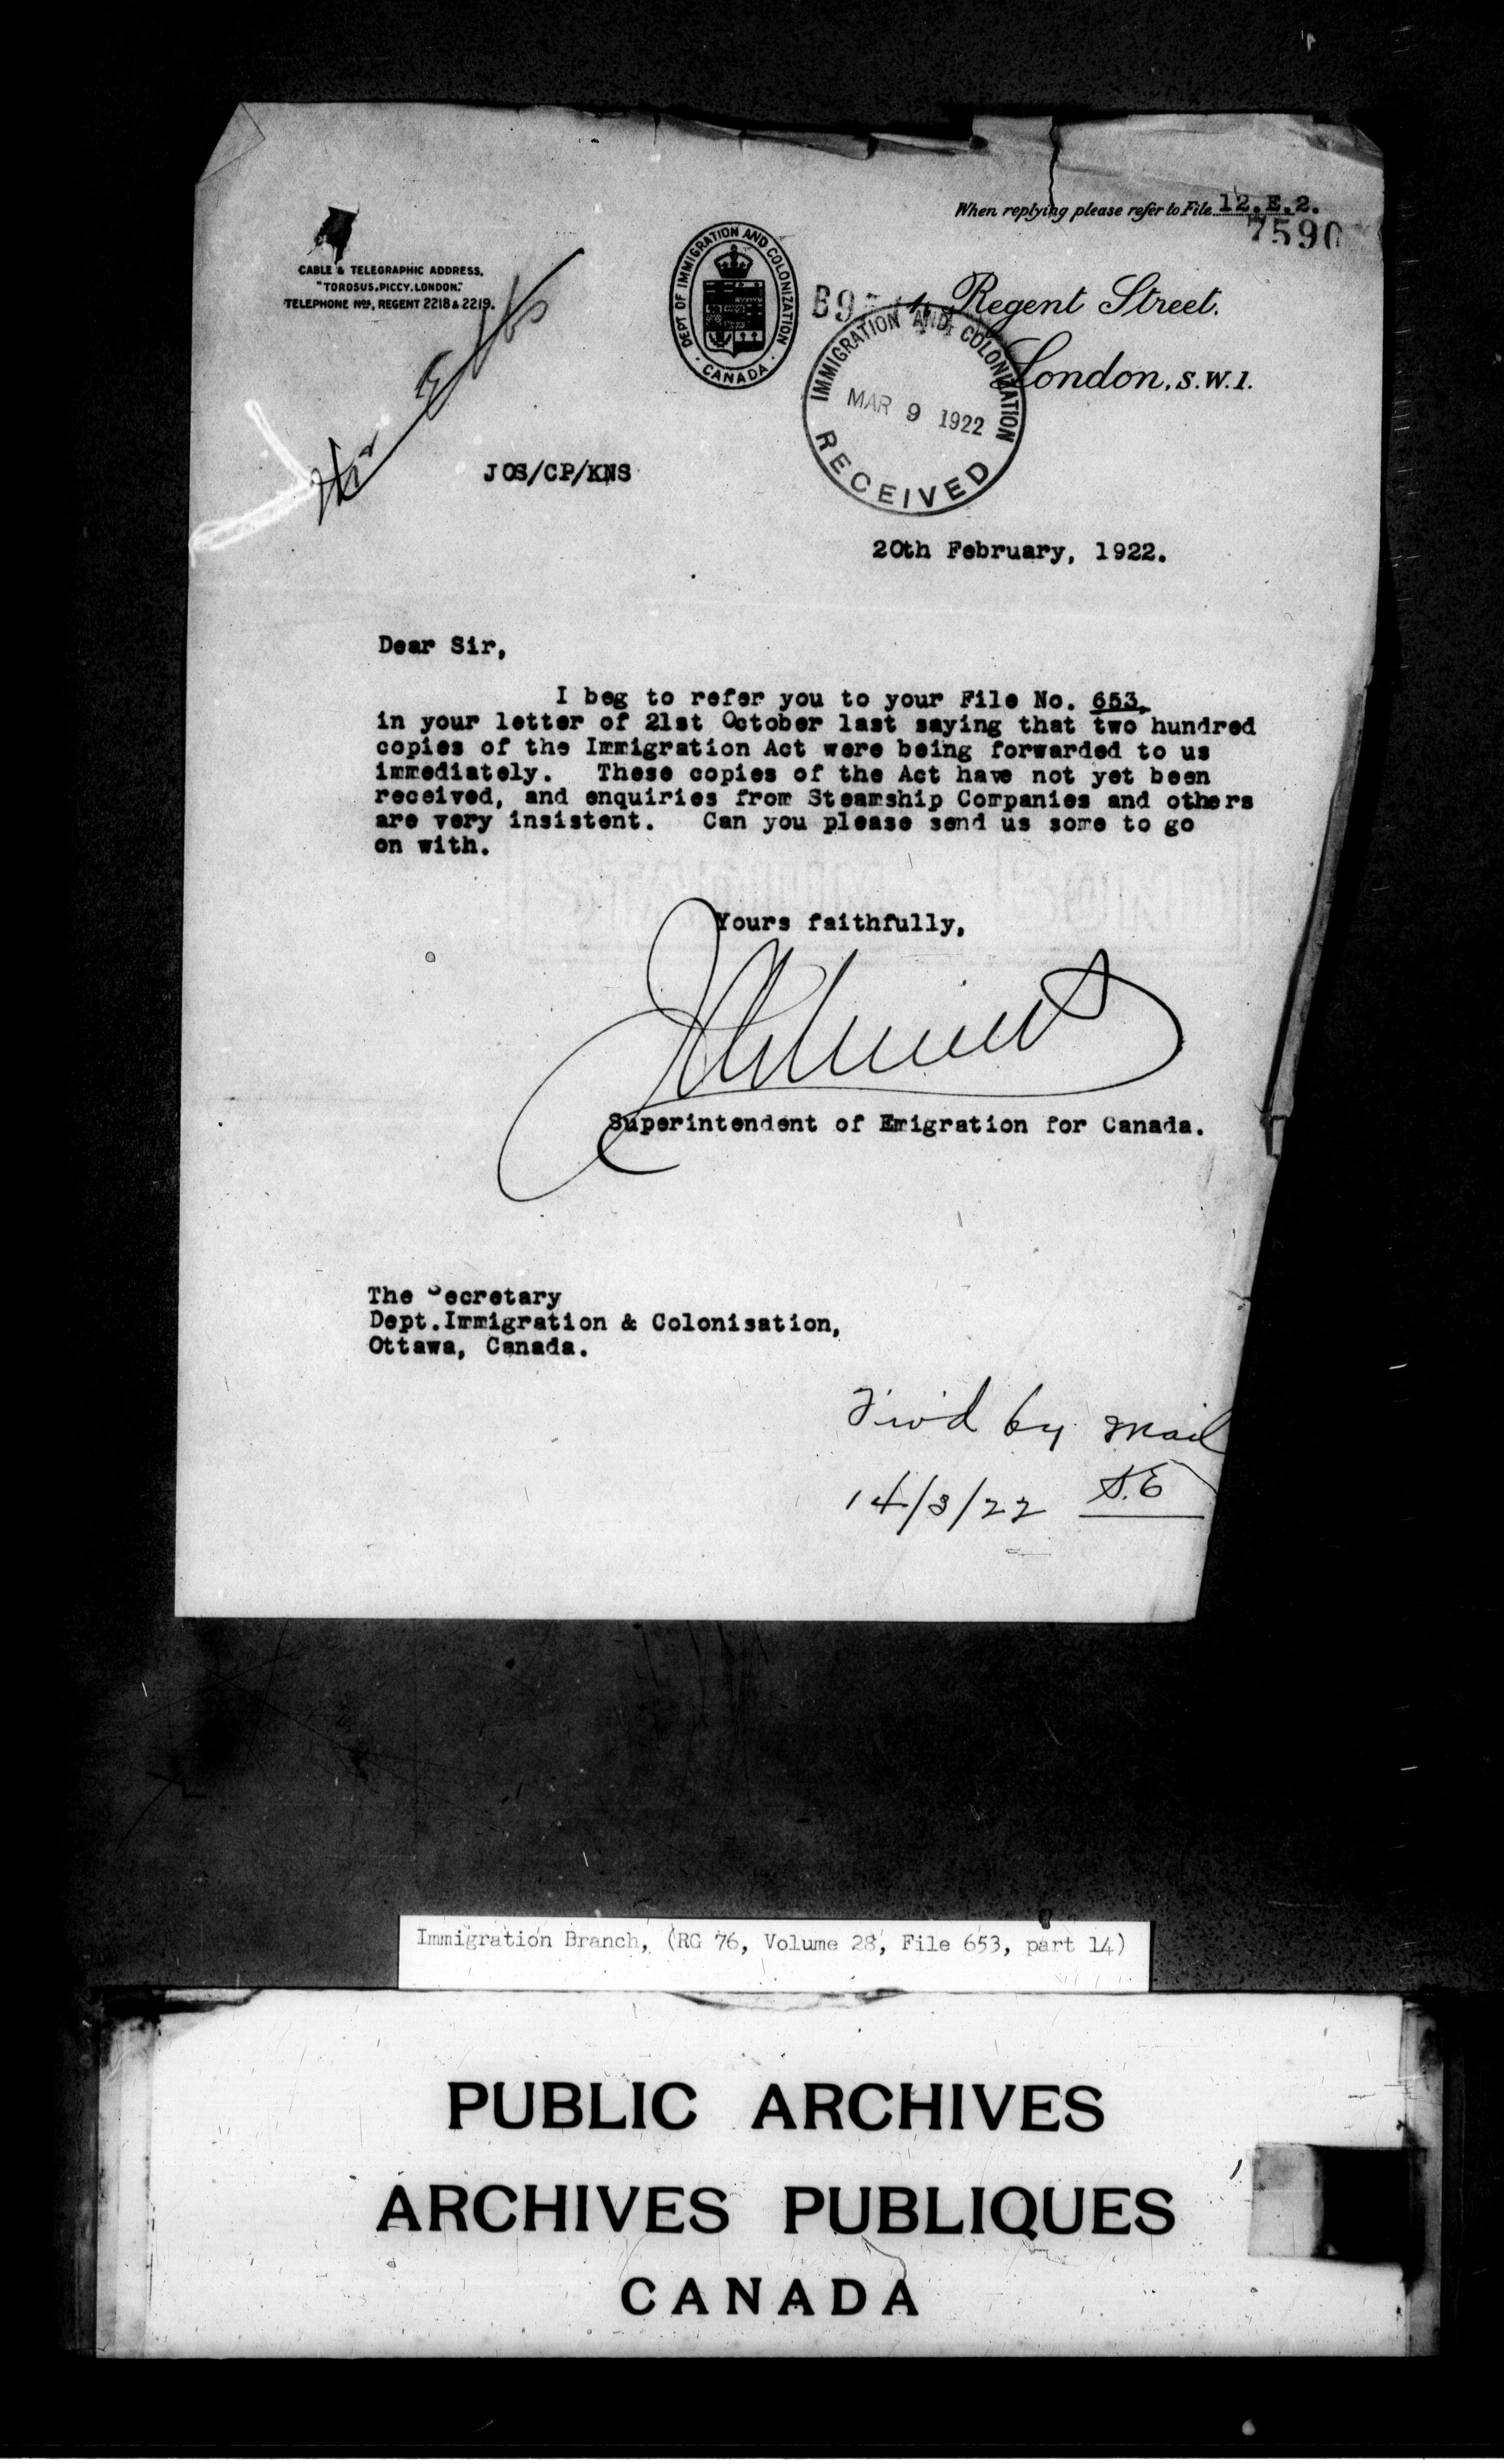 When replying please refer to File 12.E.2.
7590
CABLE & TELEGRAPHIC ADDRESS,
"TOROSUS, PICCY, LONDON."
TELEPHONE Nos. REGENT 2218 & 2219.
DEPT OF IMMIGRATION AND COLONIZATION
CANADA
Regent Street.
London, S.W.1.
IMMIGRATION AND COLONIZATION
MAR 9 1922
RECEIVED
JOS/CP/KNS
20th February, 1922.
Dear Sir,
I beg to refer you to your File No. 653,
in your letter of 21st October last saying that two hundred
copies of the Immigration Act were being forwarded to us
immediately. These copies of the Act have not yet been
received, and enquiries from Steamship Companies and others
are very insistent. Can you please send us some to go
on with.
Yours faithfully,
Superintendent of Emigration for Canada.
The Secretary
Dept.Immigration & Colonisation,
Ottawa, Canada.
by mail
14/3/22 S.E
Immigration Branch, (RG 76, Volume 28, File 653, part 14)
PUBLIC ARCHIVES
ARCHIVES PUBLIQUES
CANADA